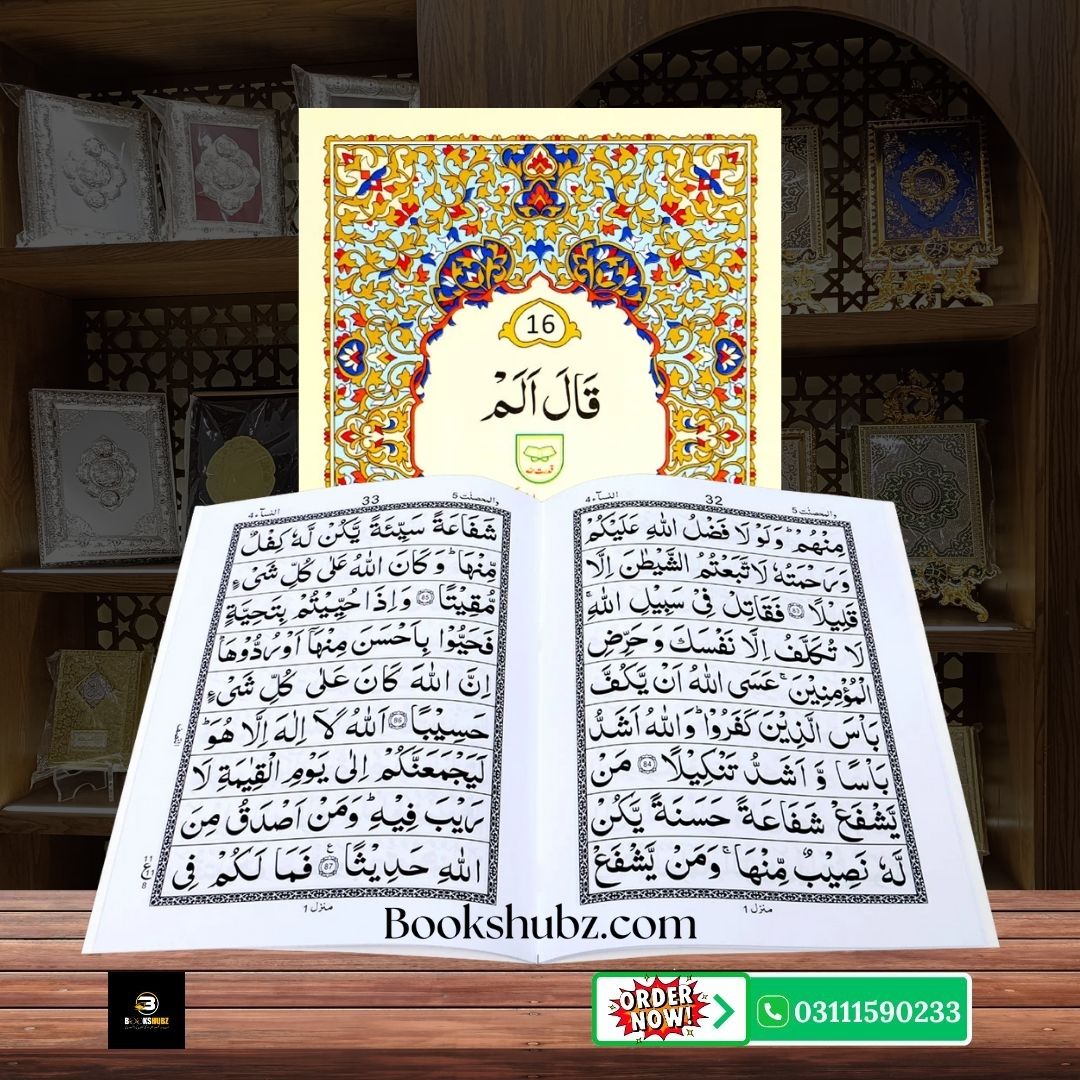 16
قَالَ اَلَمْ
قدرت الله
والمحصنٰت ٥
32
النسآء ٤
مِنْهُمْ ؕ وَلَوْ لَا فَضْلُ اللّٰهِ عَلَيْكُمْ
وَرَحْمَتُهٗ لَا تَّبَعْتُمُ الشَّيْطٰنَ اِلَّا
قَلِيْلًا 83 فَقَاتِلْ فِىْ سَبِيْلِ اللّٰهِ ۚ
لَا تُكَلَّفُ اِلَّا نَفْسَكَ وَحَرِّضِ
الْمُؤْمِنِيْنَ ۚ عَسَى اللّٰهُ اَنْ يَّكُفَّ
بَاْسَ الَّذِيْنَ كَفَرُوْا ؕ وَاللّٰهُ اَشَدُّ
بَاْسًا وَّ اَشَدُّ تَنْكِيْلًا 84 مَنْ
يَّشْفَعْ شَفَاعَةً حَسَنَةً يَّكُنْ
لَّهٗ نَصِيْبٌ مِّنْهَا ۚ وَمَنْ يَّشْفَعْ
منزل ١
والمحصنٰت ٥
33
النسآء ٤
شَفَاعَةً سَيِّئَةً يَّكُنْ لَّهٗ كِفْلٌ
مِّنْهَا ؕ وَكَانَ اللّٰهُ عَلٰى كُلِّ شَىْءٍ
مُّقِيْتًا 85 وَاِذَا حُيِّيْتُمْ بِتَحِيَّةٍ
فَحَيُّوْا بِاَحْسَنَ مِنْهَاۤ اَوْ رُدُّوْهَا
اِنَّ اللّٰهَ كَانَ عَلٰى كُلِّ شَىْءٍ
حَسِيْبًا 86 اَللّٰهُ لَاۤ اِلٰهَ اِلَّا هُوَ ؕ
لَيَجْمَعَنَّكُمْ اِلٰى يَوْمِ الْقِيٰمَةِ لَا
رَيْبَ فِيْهِ ؕ وَمَنْ اَصْدَقُ مِنَ
اللّٰهِ حَدِيْثًا 87 ع فَمَا لَكُمْ فِى
11
ع
11
8
منزل ١
Bookshubz.com
BOOKSHUBZ
ORDER
NOW!
03111590233